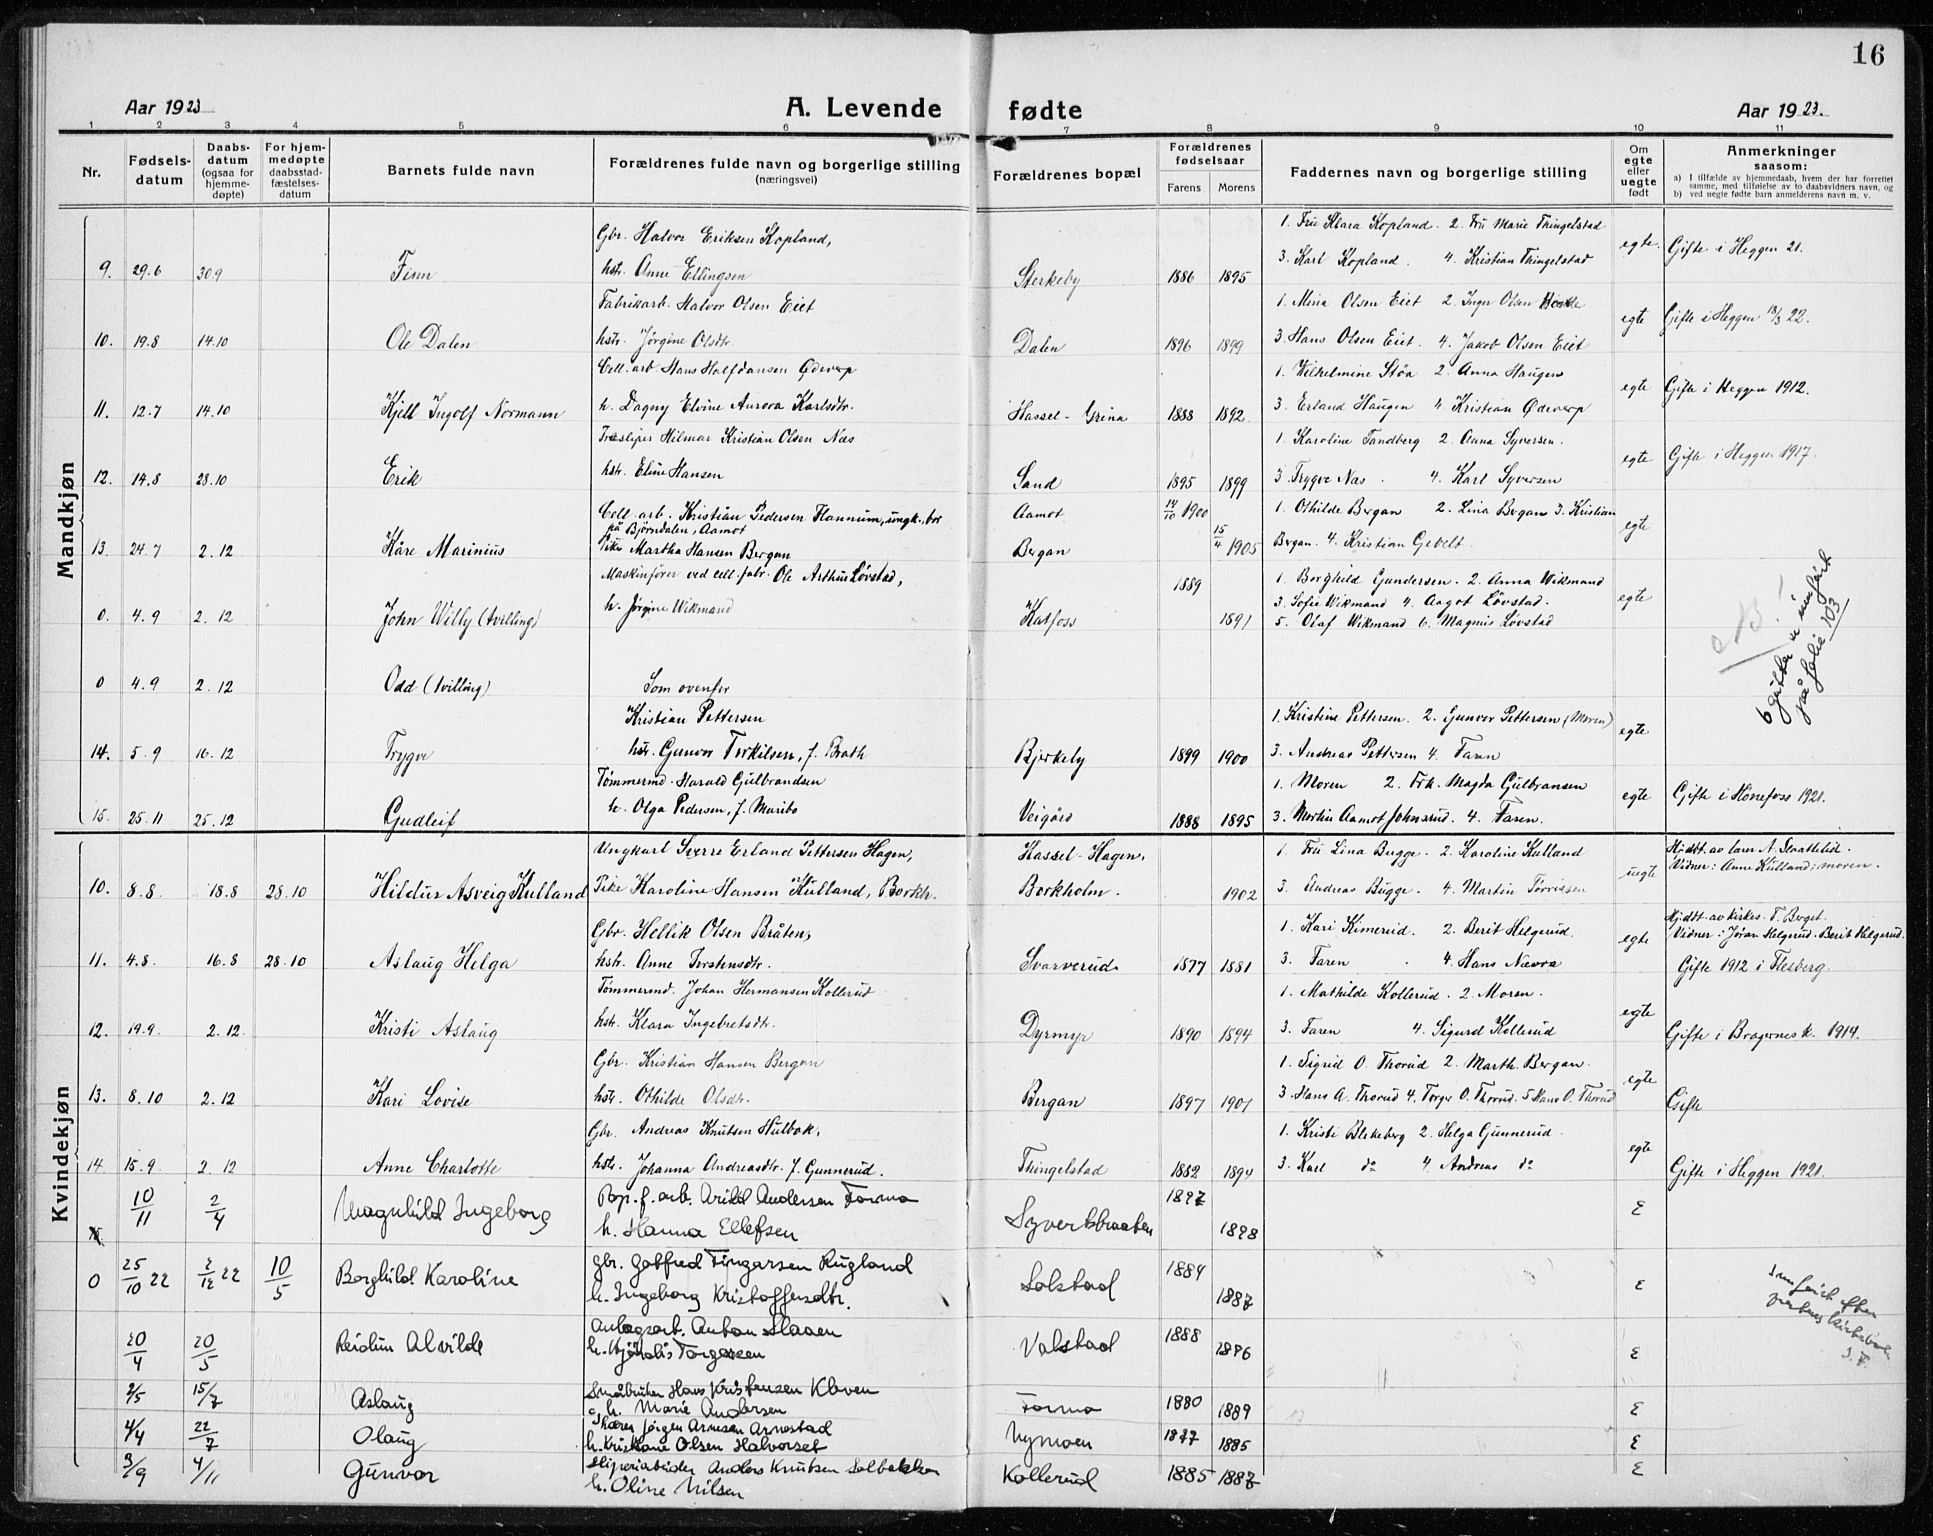 16
Aar 1923
A. Levende fødte
Aar 1923.
1 2 3 4 5 6 7 8 9 10 11
Nr.
Fødsels-
datum
Daabs-
datum
(ogsaa for
hjemme-
døpte)
For hjem-
medøpte
daabsstad-
fæstelses-
datum
Barnets fulde navn
Forældrenes fulde navn og borgerlige stilling
(næringsvei)
Forældrenes bopæl
Forældrenes
fødselsaar
Farens Morens
Faddernes navn og borgerlige stilling
Om
egte
eller
uegte
født
Anmerkninger
saasom:
a) I tilfælde av hjemmedaab, hvem der har forrettet
samme, med tilføielse av to daabsvidners navn, og
b) ved uegte fødte barn anmelderens navn m. v.
Mandkjøn
Gbr. Halvor Eriksen Kopland, 1. Fru Klara Kopland. 2. Fru Marie Thingelstad
9. 29.6 30.9 Finn hstr. Anne Ellingsen Sterkeby 1886 1895 3. Karl Kopland. 4. Kristian Thingelstad egte. Gifte i Heggen 21.
Fabrikarb. Halvor Olsen Eiet 1. Mina Olsen Eiet 2. Inger Olsen
10. 19.8 14.10 Ole Dalen hstr. Jørgine Olsdtr. Dalen 1896 1899 3. Hans Olsen Eiet. 4. Jakob Olsen Eiet egte Gifte i Heggen 18/3 22.
Cell. arb. Hans Halfdansen Ødeverp 1. Wilhelmine Støa 2. Anna Haugen
11. 12.7 14.10 Kjell Ingolf Normann h. Dagny Elvine Aurora Karlsdtr. Hassel-Grina 1888 1892 3. Erland Haugen 4. Kristian Ødeverp egte Gifte i Heggen 1912.
Træsliper Hilmar Kristian Olsen Næs 1. Karoline Tandberg 2. Anna Syversen.
12. 14.8 28.10 Erik hstr. Eline Hansen Sand 1895 1899 3. Trygve Næs. 4. Karl Syversen egte Gifte i Heggen 1917.
Cell. arb. Kristian Pedersen Flannum, ungk., bor Aamot 14/10 1900 1. Othilde Bergan 2. Lina Bergan 3. Kristian
på Bjørndalen, Aamot
13. 24.7 2.12 Kåre Marinius Pike Martha Hansen Bergan Bergan 15/4 1905 Bergan. 4. Kristian Gevelt. egte
Maskinfører ved cell. fabr. Ole Arthur Løvstad, 1889 1. Borghild Gundersen. 2. Anna Wikmand
0. 4.9 2.12 John Willy (tvilling) h. Jørgine Wikmand Katfoss 1891 3. Sofie Wikmand 4. Aagot Løvstad. egte
5. Olaf Wikmand 6. Magnus Løvstad
NB!
6 gutter er innført
på folie 103
0 4.9 2.12 Odd (tvilling) Som ovenfor
Kristian Pettersen 1. Kristine Pettersen. 2. Gunvor Pettersen (Moren)
14. 5.9 16.12 Trygve hstr. Gunvor Terkilsen, f. Brath Bjerkeby 1899 1900 3. Andreas Pettersen 4. Faren egte
Tømmermd. Harald Gulbrandsen 1. Moren 2. Frk. Magda Gulbransen
15. 25.11 25.12 Gudleif h. Olga Pedersen, f. Maribo Veigård 1888 1895 3. Martin Aamot Johnsrud. 4. Faren. egte Gifte i Hønefoss 1921.
Kvindekjøn
Ungkarl Sverre Erland Pettersen Hagen, Hassel-Hagen. 1. Fru Lina Bugge. 2. Karoline Kulland Hjddt. av lærer N. Skrattelid.
10. 8.8. 18.8 28.10 Hildur Asveig Kulland Pike Karoline Hansen Kulland, Borkh. Borkholm. 1902 3. Andreas Bugge. 4. Martin Tørrissen uegte Vidner: Anne Kulland; moren.
Gbr. Hellik Olsen Bråten, 1. Kari Kimerud. 2. Berit Helgerud. Hjddt. av kirkes. T. Berget.
11. 4.8. 16.8 28.10 Aslaug Helga hstr. Anne Torstensdtr. Svarverud. 1877 1881 3. Faren. 4. Hans Nævra egte Vidner: Jøran Helgerud. Berit Helgerud.
Gifte 1912 i Flesberg.
Tømmermd. Johan Hermansen Kollerud 1. Mathilde Kollerud. 2. Moren.
12. 19.9. 2.12. Kristi Aslaug hstr. Klara Ingebretsdtr. Dyrmyr 1890 1894 3. Faren 4. Sigurd Kollerud egte Gifte i Bragernes k. 1914.
Gbr. Kristian Hansen Bergan 1. Sigrid O. Thorud 2. Marth. Bergan.
13. 8.10 2.12 Kari Lovise hstr. Othilde Olsdtr. Bergan 1897 1901 3. Hans A. Thorud 4. Torger O. Thorud. 5 Hans O. Thorud egte Gifte
Gbr. Andreas Knutsen Hulbak, 1. Kristi Blekeberg 2. Helga Gunnerud.
14. 15.9. 2.12 Anne Charlotte hstr. Johanna Andreasdtr. f. Gunnerud. Thingelstad 1882 1894 3. Karl do 4. Andreas do egte Gifte i Heggen 1921.
10/11 2/4 Magnhild Ingeborg Pap. f. arb. Arild Andersen Formo 1897
h. Hanna Ellefsen Syvertsbraaten 1898 E
0 25/10 22 2/12 22 10/5 Borghild Karoline gbr. Gotfred Fingarsen Rugland Solstad 1884
h. Ingeborg Kristoffersdtr. 1887 E
Innført efter
prestens kirkebok
20/4 20/5 Reidun Alvilde Anlegsarb. Anton Slaaen Valstad 1888
h. Hjørdis Torgersen 1896 E
2/5 15/7 Aslaug Småbruker Hans Kristensen Kleven
h. Marie Andersen Formo 1880 1889 E
4/4 22/7 Olaug Jørgen Arnesen Arnestad
h. Kristiane Olsen Halvorset Nymoen 1877 1885 E
3/9 4/11 Gunvor Sliperiarbeider Anders Knutsen Solbakken
h. Oline Nilsen Kollerud 1885 1887 E